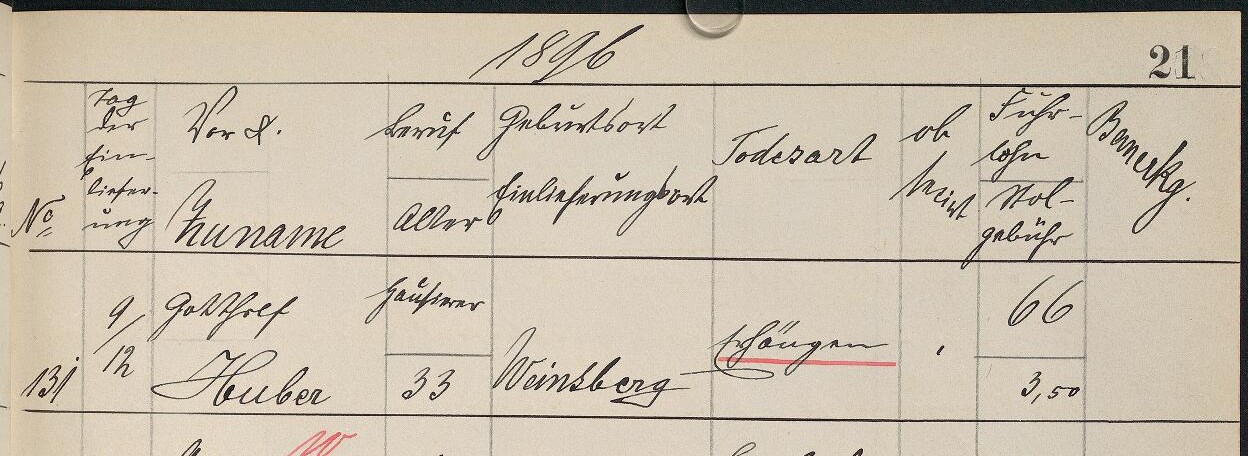 1896
21
Tag
der
Ein-
liefer-
ung
No
Vor &.
Zuname
Beruf
Alter
Geburtsort
Einlieferungsort
Todesart
ob
secirt
Fuhr-
lohn
Stol-
gebühr
Bemerkg.
131
9/12
Gotthilf
Huber
Hausierer
33
Weinsberg
Erhängen
66
3,50